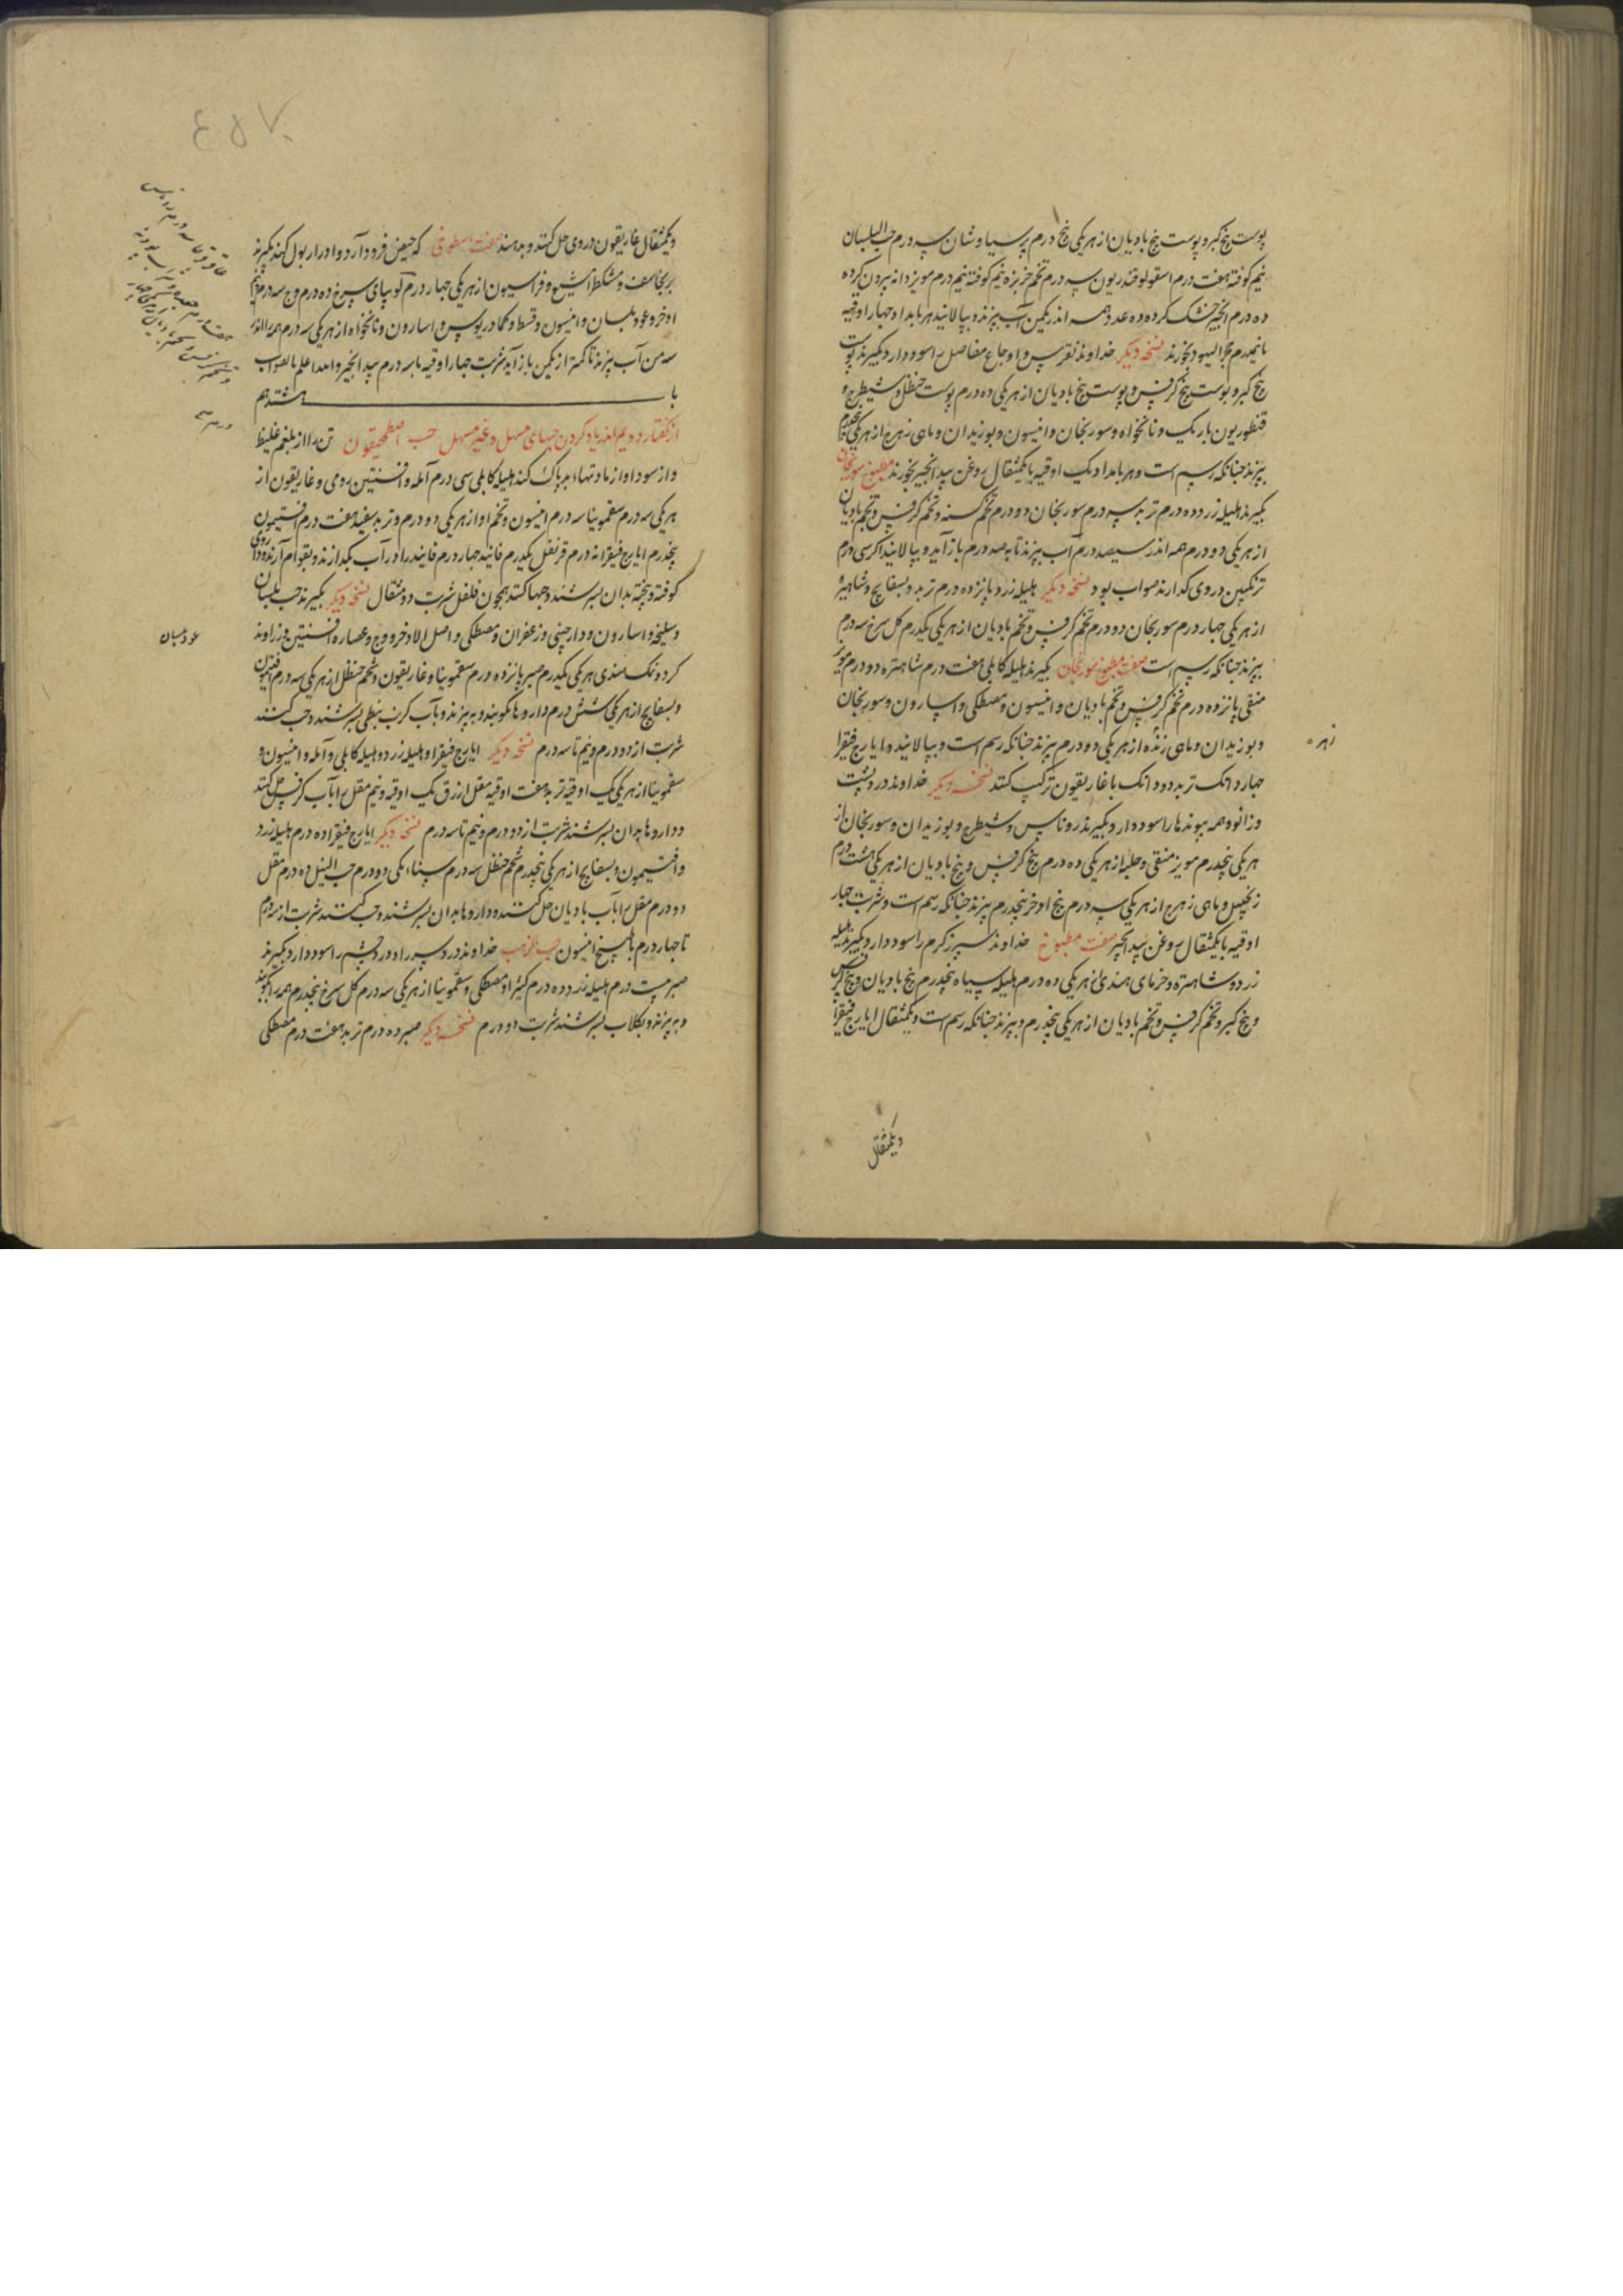 پوست بیخ کبر و پوست بیخ بادیان از هر یکی پنج درم پرسیاوشان سه درم حب البلسان
نیم کوفته هفت درم اسقولوقندریون سه درم تخم خربزه نیم کوفته نیم درم مویز دانه بیرون کرده
ده درم انجیر خشک کرده ده عدد همه اندر یکمن آب بپزند و بپالایند هر بامداد چهار اوقیه
با نیمدرم حجر الیهود بخورند نسخه دیکر خداوند نقرس و اوجاع مفاصل را سود دارد بگیرند پوست
بیخ کبر و پوست بیخ کرفس و پوست بیخ بادیان از هر یکی ده درم پوست حنظل و شیطرج و
قنطوریون باریک و نانخواه و سورنجان و انیسون و بوزیدان و ماهی زهرج از هر یکی
بپزند چنانکه رسم است و هر بامداد یک اوقیه با یکمثقال روغن بیدانجیر بخورند مطبوخ سورنجان
بگیرند هلیله زرد ده درم تربد سه درم سورنجان دو درم تخم کسنه و تخم کرفس و تخم بادیان
از هر یکی دو درم همه اندر سیصد درم آب بپزند تا به صد درم باز آید و بپالایند اکر سی درم
ترنکبین در وی کدازند صواب بود نسخه دیکر هلیله زرد پانزده درم تربد و بسفایج و شاهتره
از هر یکی چهار درم سورنجان دو درم تخم کرفس و تخم بادیان از هر یکی یکدرم کل سرخ سه درم
بپزند چنانکه رسم است صفت مطبوخ سورنجان بگیرند هلیله کابلی هفت درم شاهتره دو درم مویز
منقی پانزده درم تخم کرفس و تخم بادیان و انیسون و مصطکی و اسارون و سورنجان
و بوزیدان و ماهی زنده از هر یکی دو درم بپزند چنانکه رسم است و بپالایند و ایارج فیقرا
چهار دانک تربد دو دانک با غاریقون ترکیب کنند نسخه دیکر خداوند درد پشت
و زانو و همه پیوندها را سود دارد بگیرند روناس و شیطرج و بوزیدان و سورنجان از
هر یکی پنجدرم مویز منقی و حلبه از هر یکی ده درم بیخ کرفس و بیخ بادیان از هر یکی هشت درم
زنجبیل و ماهی زهرج از هر یکی سه درم بیخ اذخر پنجدرم بپزند چنانکه رسم است و شربت چهار
اوقیه با یکمثقال روغن بیدانجیر صفت مطبوخ خداوند سپرز کرم را سود دارد بگیرند هلیله
زرد و شاهتره و خرمای هندی از هر یکی ده درم هلیله سیاه پنجدرم بیخ بادیان و بیخ کرفس
و بیخ کبر و تخم کرفس و تخم بادیان از هر یکی پنجدرم و بپزند چنانکه رسم است و یکمثقال ایارج فیقرا
زهره
ویکمثقال
٤٥٧
ویکمثقال غاریقون در وی حل کنند و بدهند صفت که حیض فرود آرد و ادرار بول کند بگیرند
برنجاسف و مشکطرامشیع و فراسیون از هر یکی چهار درم لوبیای سرخ ده درم وج سه درم
اذخر و عود بلسان و انیسون و قسط و کمادریوس و اسارون و نانخواه از هر یکی سه درم همه را اندر
سه من آب بپزند تا کمتر از یکمن باز آید شربت چهار اوقیه با سه درم بیدانجیر و الله اعلم بالصواب
باب هشتدهم
از کفتار دویم اندر یاد کردن حبهای مسهل و غیر مسهل حب اصطمحیقون تن را از بلغم غلیظ
و از سودا و از مادتها بد پاک کند هلیله کابلی سی درم آمله و افسنتین رومی و غاریقون از
هر یکی سه درم سقمونیا سه درم انیسون و تخم او از هر یکی دو درم و تربد سفید هفت درم افتیمون
پنجدرم ایارج فیقرا نه درم قرنفل یکدرم فانید چهار درم فانید را در آب بکدازند و بقوام آرند و داروی
کوفته و بیخته بدان بسرشند و حبها کنند همچون فلفل شربت دو مثقال نسخه دیکر بگیرند حب بلسان
و سلیخه و اسارون و دارچینی و زعفران و مصطکی و اصل الاذخر و وج و عصاره افسنتین و زراوند
کرد و نمک هندی هر یکی یکدرم صبر پانزده درم سقمونیا و غاریقون و شحم حنظل از هر یکی سه درم افتیمون
و بسفایج از هر یکی شش درم داروها بکوبند و به بیزند و بآب کرنب نبطی بسرشند و حب کنند
شربت از دو درم و نیم تا سه درم نسخه دیکر ایارج فیقرا و هلیله زرد و هلیله کابلی و آمله و انیسون و
سقمونیا از هر یکی یک اوقیه تربد هفت اوقیه مقل ازرق یک اوقیه و نیم مقل را بآب کرفس حل کنند
و داروها بدان بسرشند شربت از دو درم و نیم تا سه درم نسخه دیکر ایارج فیقرا ده درم هلیله زرد
و افتیمون و بسفایج از هر یکی پنجدرم شحم حنظل سه درم سناء مکی دو درم حب النیل ده درم مقل
دو درم مقل را بآب بادیان حل کنند و داروها بدان بسرشند و حب کنند شربت از سه درم
تا چهار درم با طبیخ انیسون حب الذهب خداوند درد سر را و درد چشم را سود دارد بگیرند
صبر بیست درم هلیله زرد ده درم کثیرا و مصطکی و سقمونیا از هر یکی سه درم کل سرخ پنجدرم همه را بکوبند
و به بیزند و بکلاب بسرشند شربت دو درم نسخه دیکر صبر ده درم تربد هفت درم مصطکی
عود بلسان